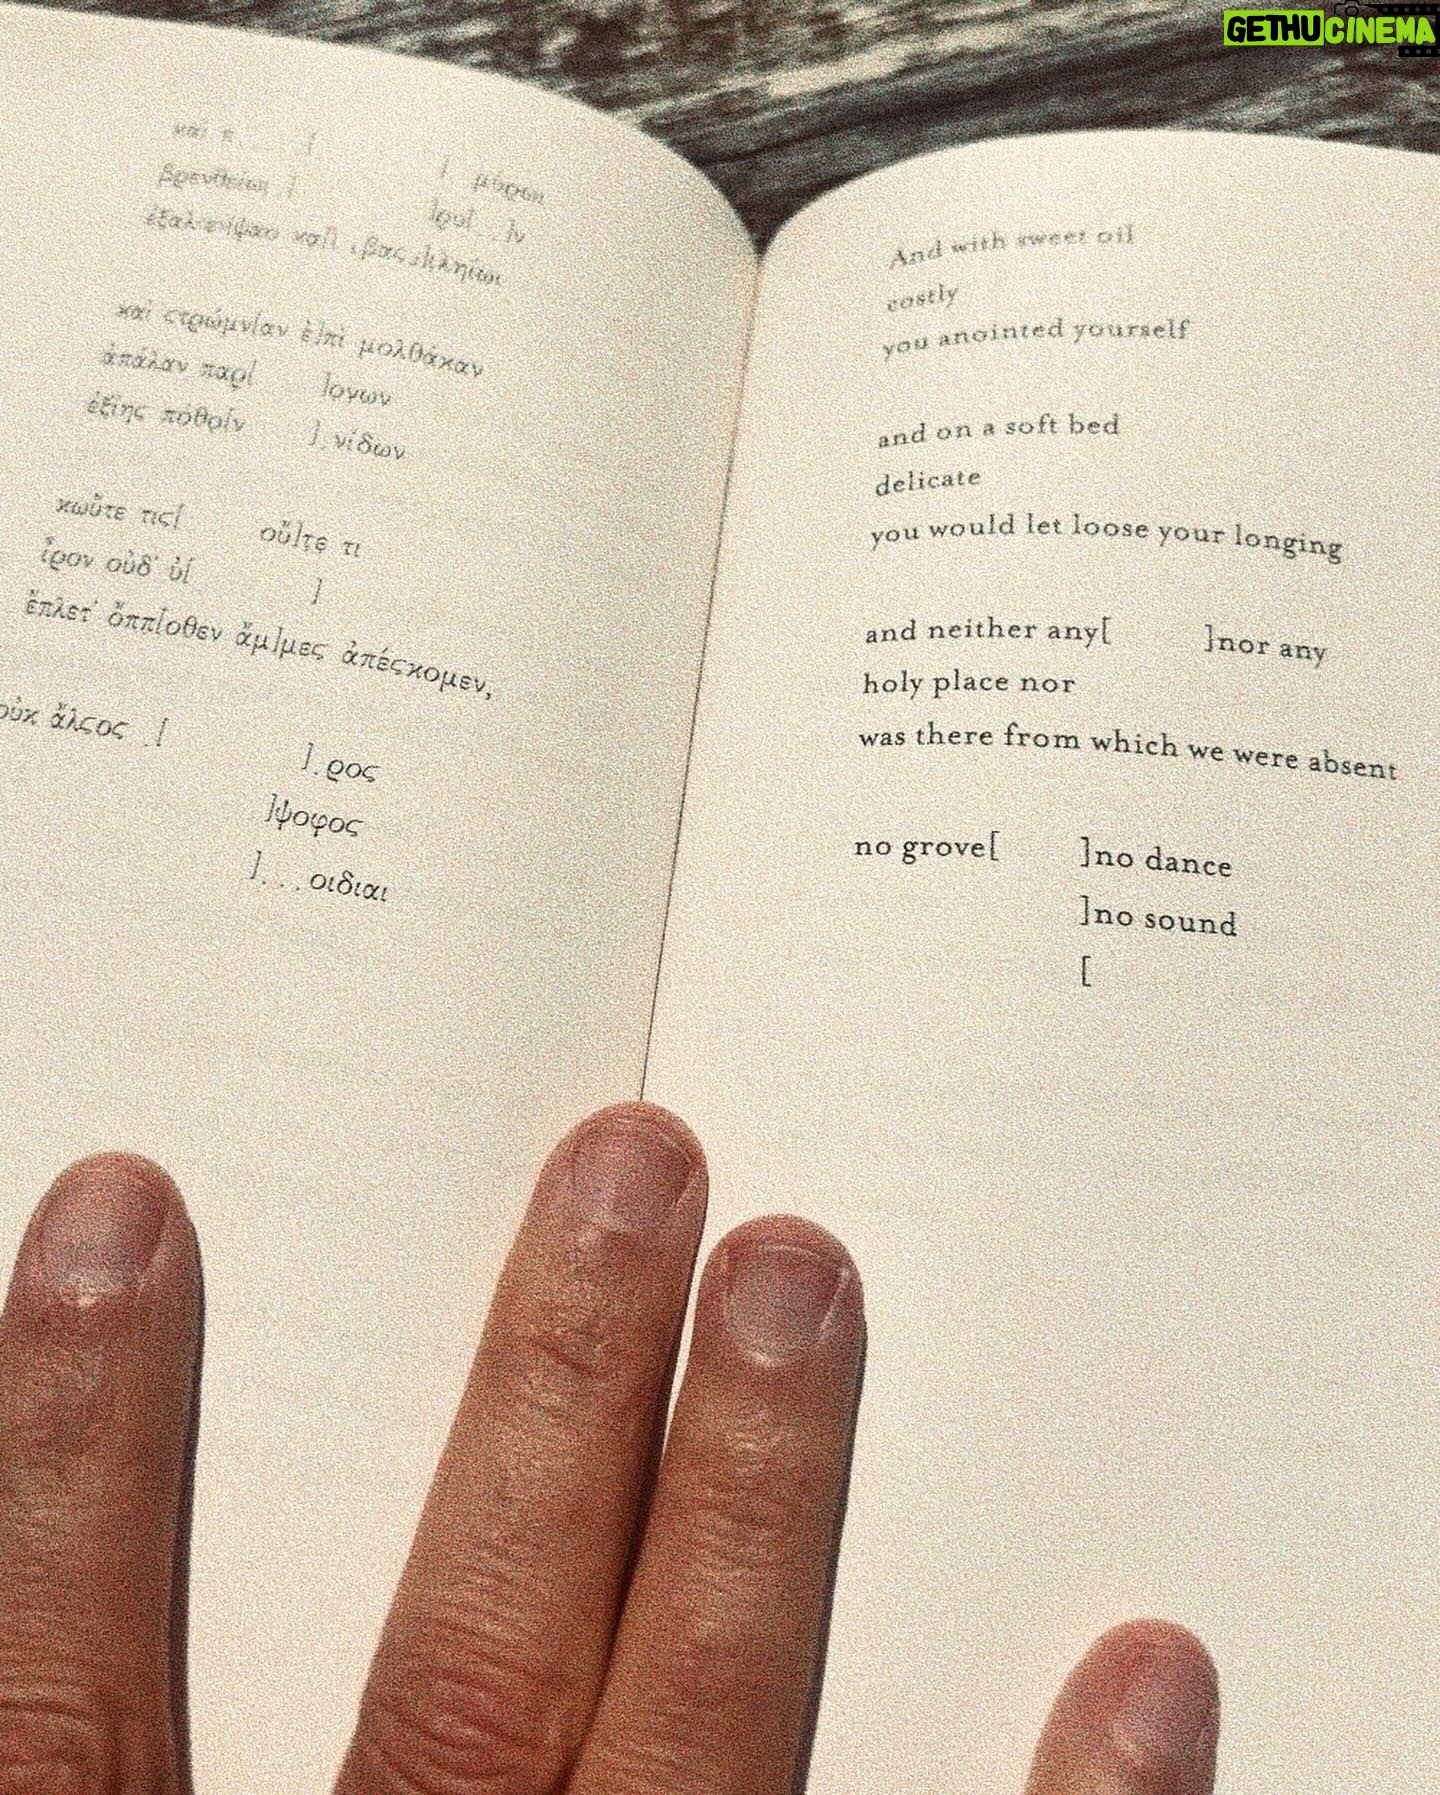 GETHUCINEMA
καὶ π . . . [ ] μύρωι
βρενθείωι . [ ]ρυ[ . . ]ν
ἐξαλείψαο κα[ὶ . βας . ]ληίωι
καὶ ϲτρώμν[αν ἐ]πὶ μολθάκαν
ἀπάλαν παρ[ ]ογων
ἐξίηϲ πόθο[ν ] . νίδων
κωὔτε τιϲ[ οὔ]τε τι
ἶρον οὐδ’ ὐ[ ]
ἔπλετ’ ὄππ[οθεν ἄμ]μεϲ ἀπέϲκομεν,
οὐκ ἄλϲοϲ . [ ] . ροϲ
]ψοφοϲ
] . . . οιδιαι
And with sweet oil
costly
you anointed yourself
and on a soft bed
delicate
you would let loose your longing
and neither any[ ]nor any
holy place nor
was there from which we were absent
no grove[ ]no dance
]no sound
[